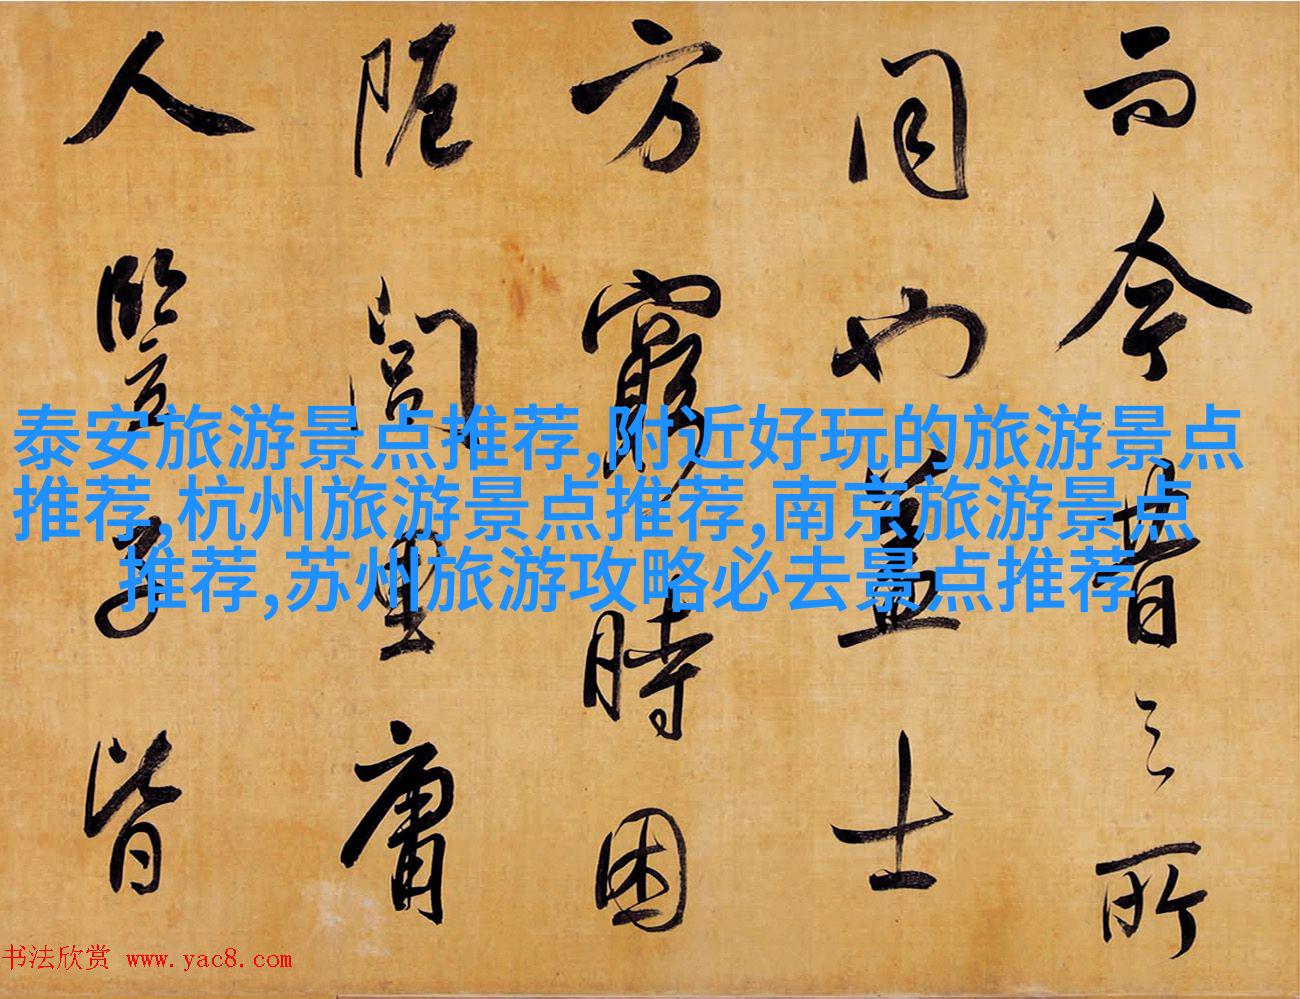 而今昔之所
同也蓋士
方窮時困
阨閭里庸
人豎子皆
泰安旅游景点推荐,附近好玩的旅游景点
推荐,杭州旅游景点推荐,南京旅游景点
推荐,苏州旅游攻略必去景点推荐
书法欣赏 www.yac8.com